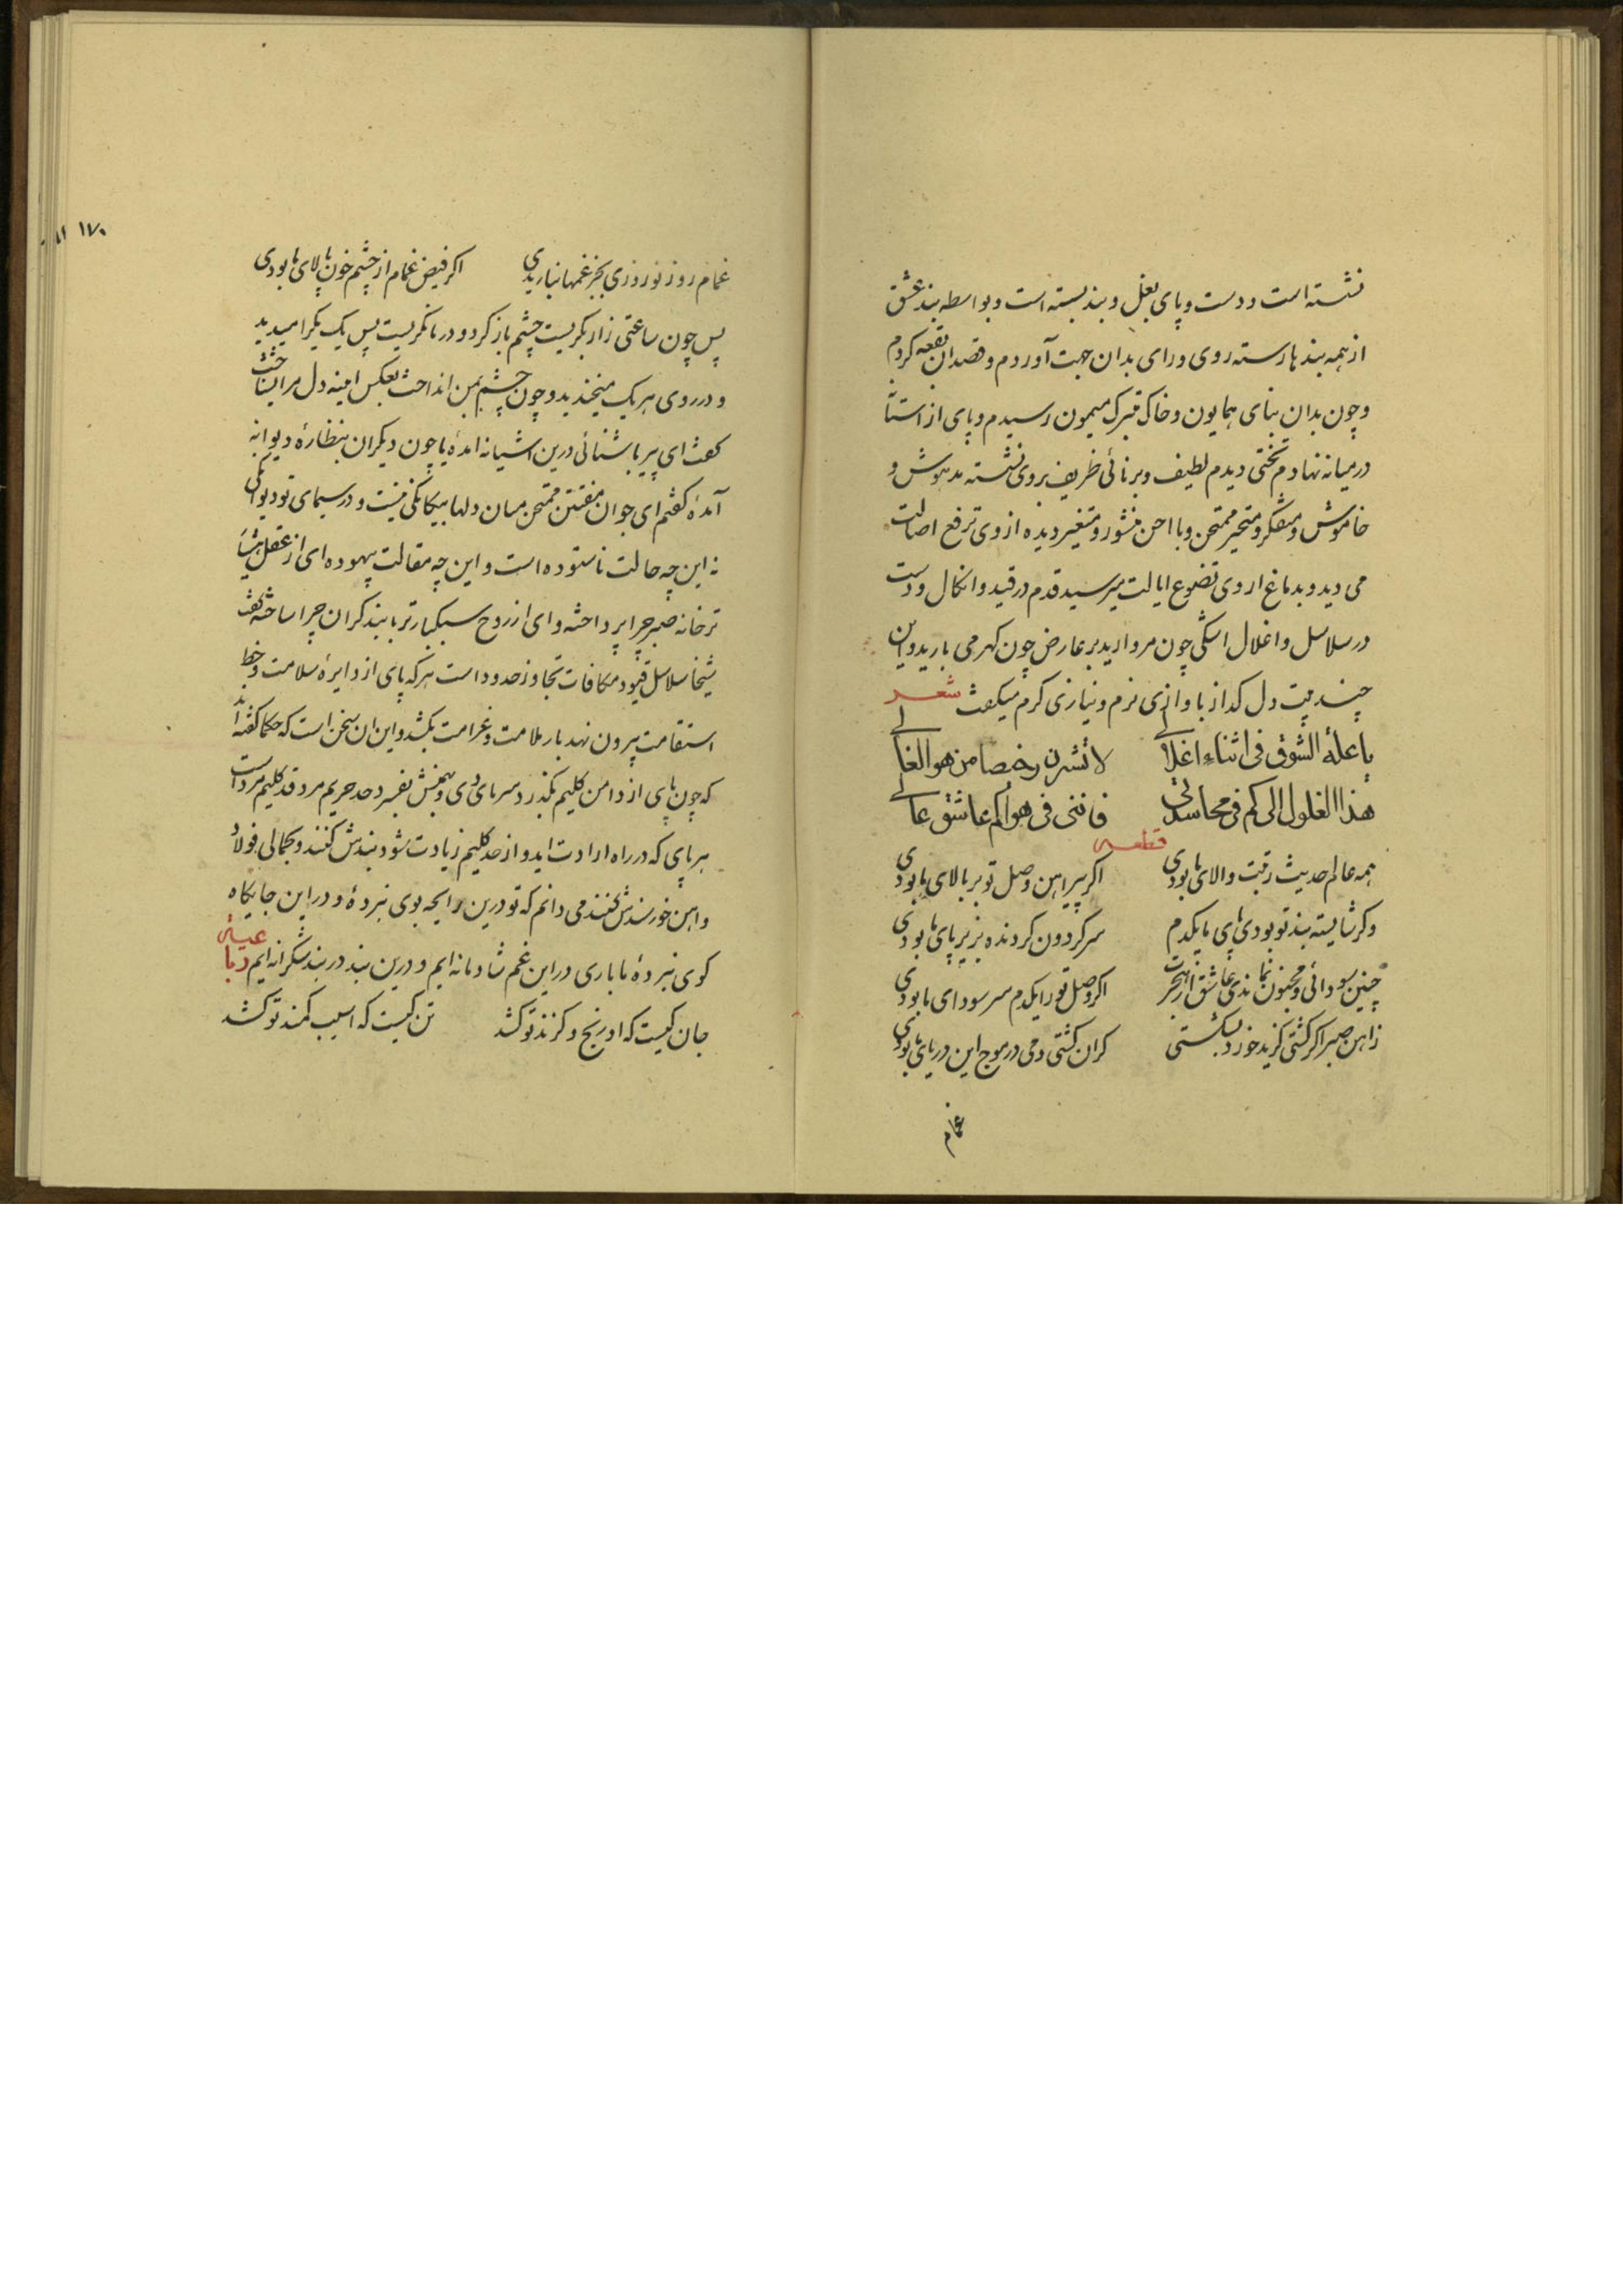 نشسته است و دست و پای بغل و بند بسته است و بواسطه بند عشق
از همه بندها رسته روی و رای بدان جهت آوردم و قصد ان بقعه کردم
و چون بدان بنای همایون و خاک متبرک میمون رسیدم و پای از استا
درمیانه نهادم تختی دیدم لطیف و برنائی ظریف بروی نشسته مدهوش و
خاموش و متفکر و متحیر ممتحن و با احن منشور و متغیر دیده از وی ترفع اصالت
می دید و بدماغ از وی تضوع ایالت میرسید قدم در قید و انکال و دست
در سلاسل و اغلال اشکی چون مروارید بر عارض چون کهر می بارید و این
چند بیت دل کداز باوازی نرم و نیازی کرم میکفت شعر
یا علة الشوق فی اثناء اغلالی لا تشرن رخصا من هو الغالی
هذا الغلول الی کم فی محاسدتی فاننی فی هواکم عاشق عالی
قطعه
همه عالم حدیث رتبت والای ما بودی اکر پیراهن وصل تو بر بالای ما بودی
وکر شایسته بند تو بودی پای ما یکدم سر کردون کردنده بزیر پای ما بودی
چنین سودائی و مجنون نماندی عاشق از هجرت اکر وصل تو را یکدم سر سودای ما بودی
ز اهن صبر اکر کشتی کزید خزد بشکستی کران کشتی دمی در موج این دریای ما بودی
غمام
۱۷۰
غمام روز نوروزی بجز غمها نباریدی اکر فیض غمام از چشم خون پالای ما بودی
پس چون ساعتی زار بکریست چشم باز کرد و در ما نکریست پس یک یکرا میدید
و در روی هر یک میخندید و چون چشم بمن انداخت بعکس اینه دل مرا بشناخت
کفت ای پیر باشنائی درین اشیانه امدهٔ یا چون دیکران بنظارهٔ دیوانه
آمدهٔ کفتم ای جوان مفتتن ممتحن میان دلها بیکانکی نیست و در سیمای تو دیوانکی
نه این چه حالت ناستوده است و این چه مقالت بیهوده ای از عقل هشیا
تر خانه صبر چرا پرداخته وای از روح سبکبارتر با بند کران چرا ساخته کفت
شیخا سلاسل قیود مکافات تجاوز حدود است هر که پای از دایرهٔ سلامت و خط
استقامت بیرون نهد بار ملامت و غرامت بکشد و این ان سخن است که حکما کفته اند
که چون پای از دامن کلیم بکذرد سرمای دی و بهمنش بفسرد حد حریم مرد قد کلیم مرداست
هر پای که در راه ارادت اید و از حد کلیم زیادت شود بندش کنند و بجمالی فولاد
و اهن خورسندش کنند می دانم که تو درین رایحه بوی نبردهٔ و در این جایکاه
کوی نبردهٔ ما باری در این غم شادمانه ایم و درین بند در بند شکرانه ایم
جان کیست که او رنج و کزند تو کشد تن کیست که اسیب کمند تو کشد